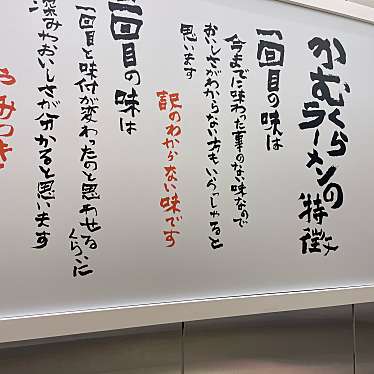 かむくら
ラーメンの
特徴
一回目の味は
今までに味わった事のない味なので
おいしさがわからない方もいらっしゃると
思います
訳のわからない味です
二回目の味は
一回目と味付が変わったのと思わせるくらいに
深みわおいしさが分かると思います
やみつき